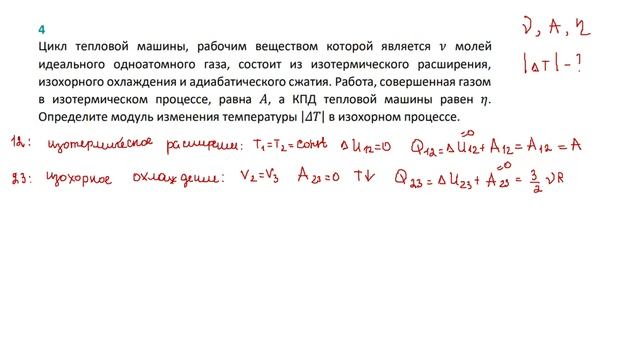 4
Цикл тепловой машины, рабочим веществом которой является ν молей
идеального одноатомного газа, состоит из изотермического расширения,
изохорного охлаждения и адиабатического сжатия. Работа, совершенная газом
в изотермическом процессе, равна A, а КПД тепловой машины равен η.
Определите модуль изменения температуры |ΔT| в изохорном процессе.
ν, A, η
|ΔT| - ?
12: изотермическое расширение: T₁=T₂=const ΔU₁₂=0 Q₁₂=ΔU₁₂⁼⁰+A₁₂=A₁₂=A
23: изохорное охлаждение: V₂=V₃ A₂₃=0 T↓ Q₂₃=ΔU₂₃+A₂₃⁼⁰=3/2 νR